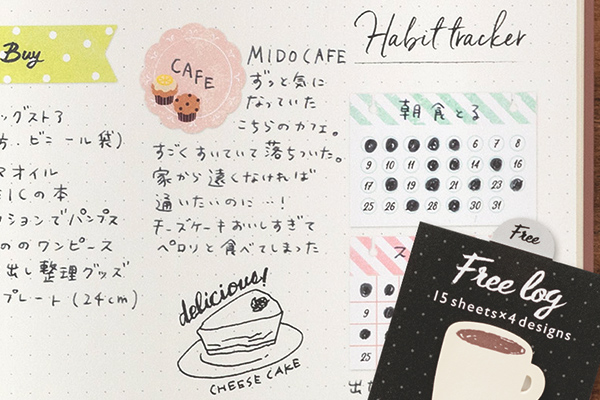 Buy
ッグストア
ち..ビニール袋)
オイル
ICの本
ションでパンプス
ののワンピース
出し整理グッズ
プレート(24cm)
CAFE
MIDO CAFE
ずっと気に
なっていた
こちらのカフェ。
すごくすいていて落ちついた。
家から遠くなければ
通いたいのに…!
チーズケーキおいしすぎて
ペロリと食べてしまった
delicious!
CHEESE CAKE
Habit tracker
朝食とる
6 7 8
9 10 13 14
17 19 22 24
25 27 29 30 31
ス
9
25
Free
Free log
15 sheets×4 designs